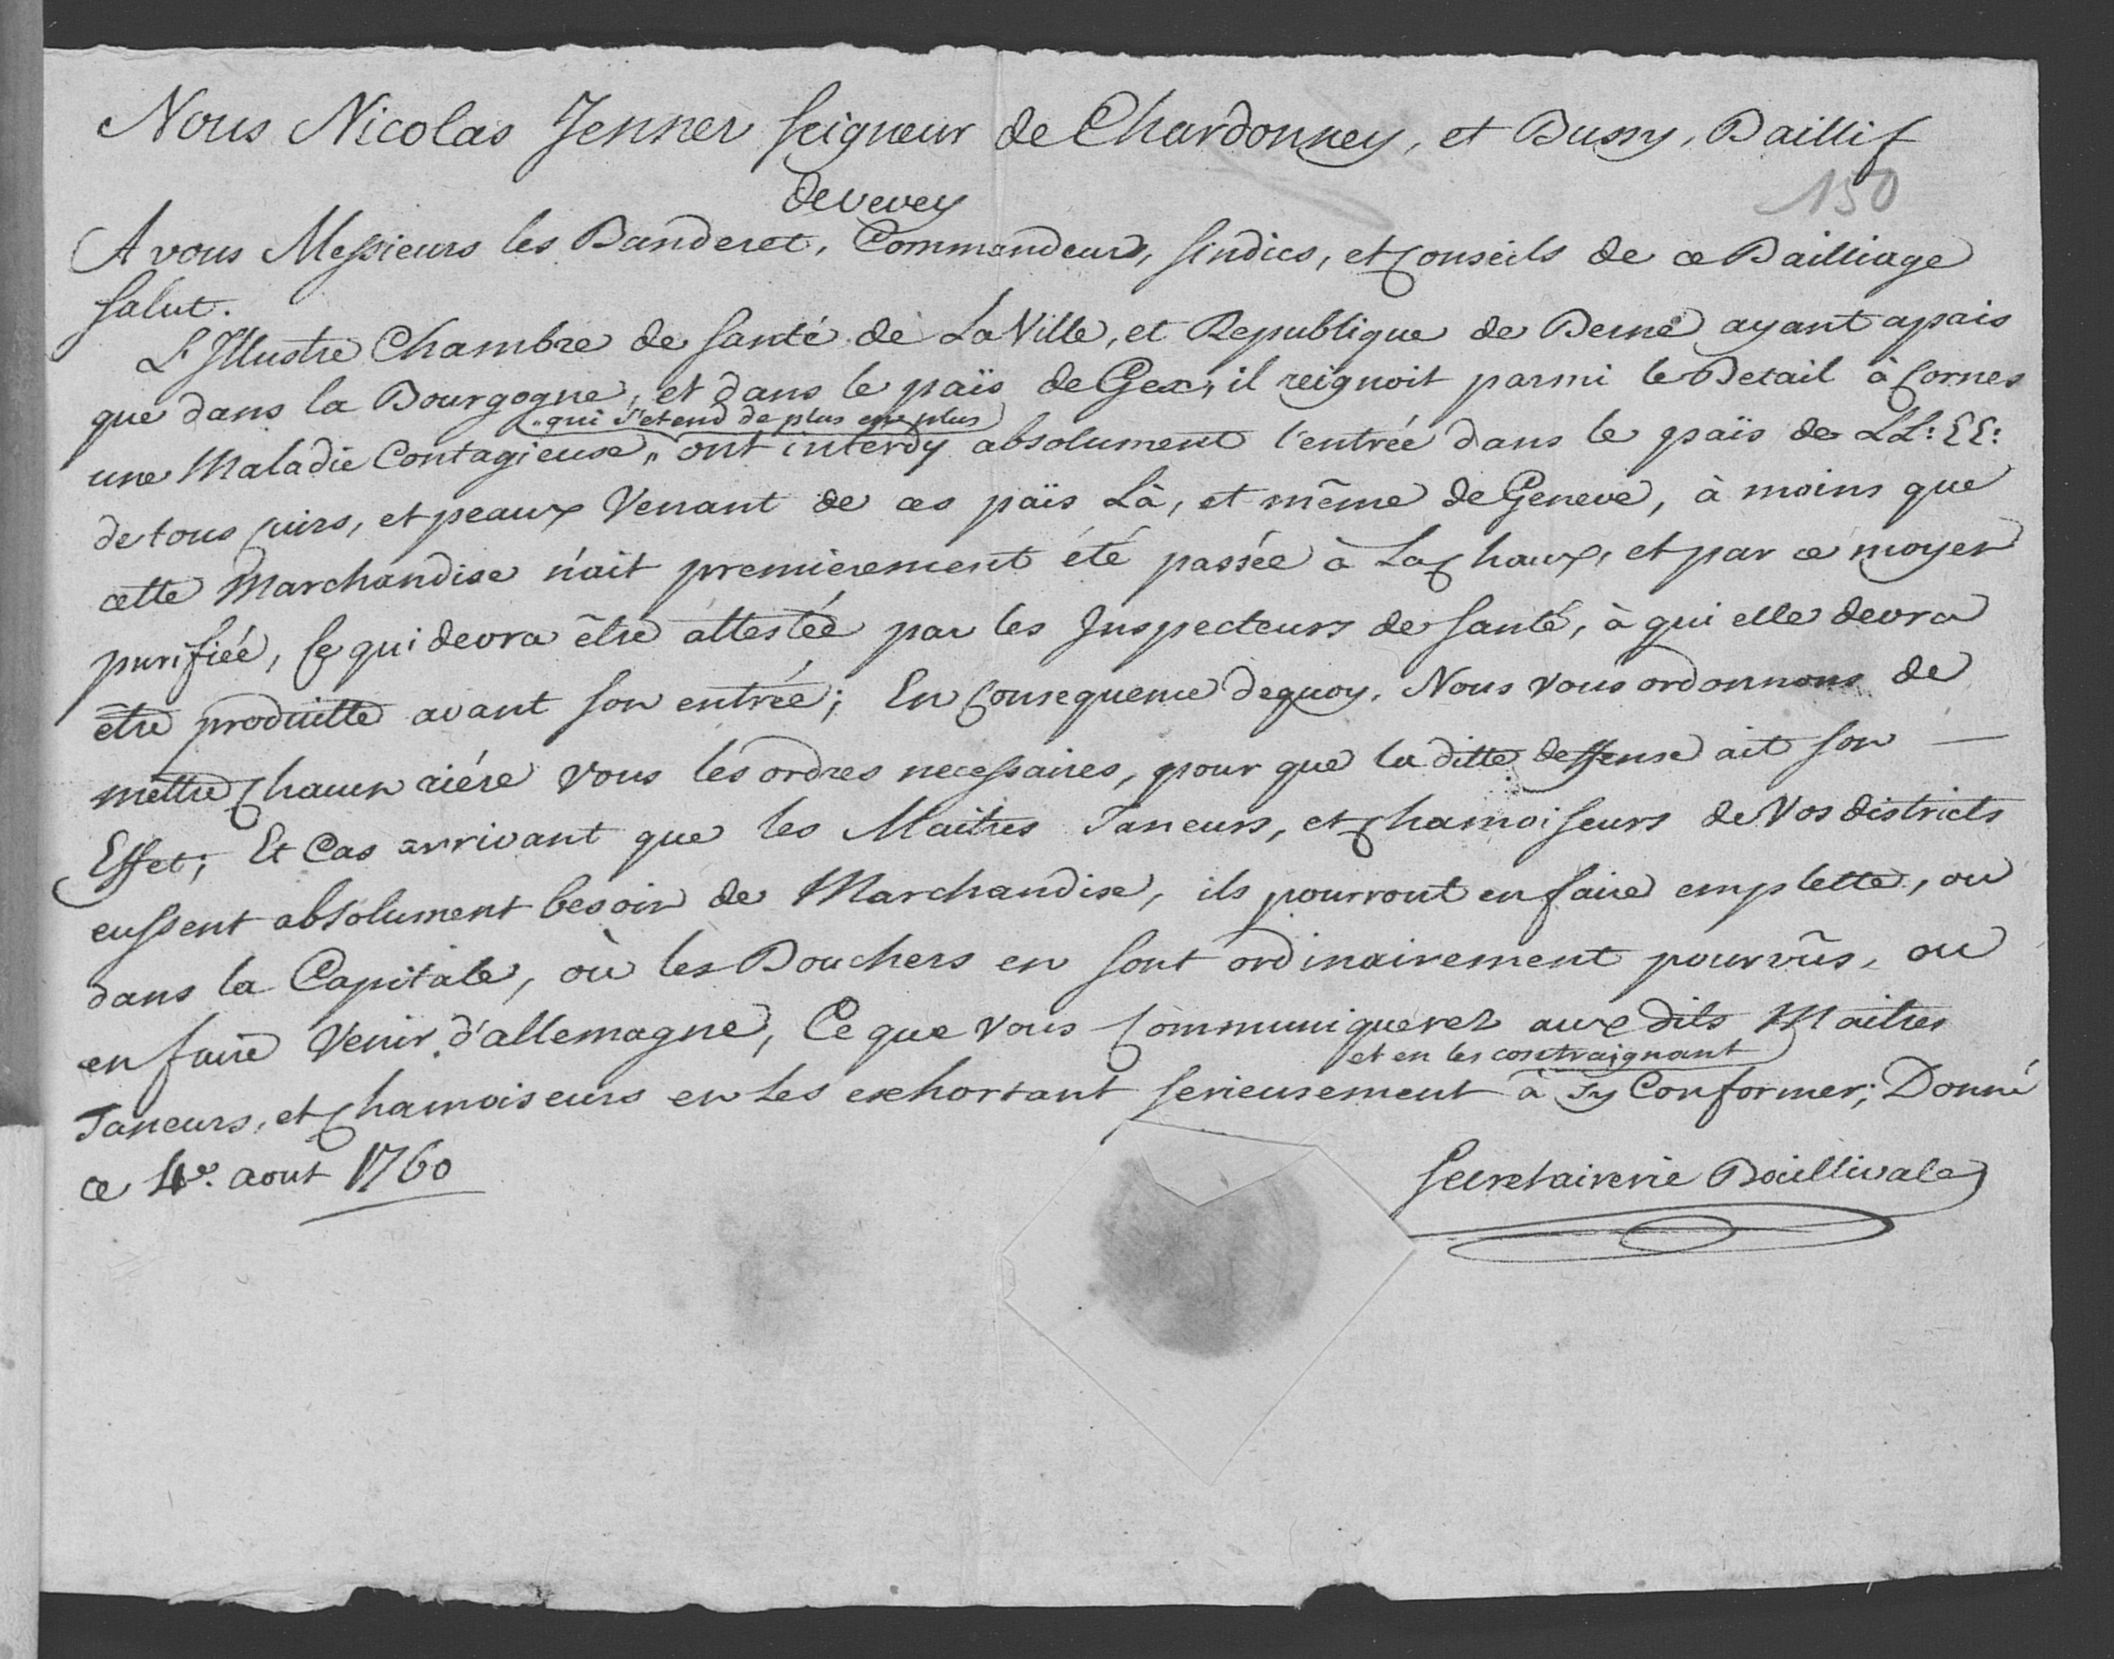 Nous Nicolas Jenner Seigneur de Chardonney, et Bussy, Baillif
de vevey
150
A vous Messieurs les Banderet, Commandeurs, sindics, et Conseils de ce Bailliage
salut.
L'Illustre Chambre de santé de La Ville, et Republique de Berne ayant apris
que dans la Bourgogne, et dans le païs de Gex, il reignoit parmi le Betail à Cornes
"qui s'etend de plus en plus
une Maladie Contagieuse," ont interdy absolument l'entrée dans le païs de LL: EE:
de tous Cuirs, et peaux Venant de ces païs Là, et même de Geneve, à moins que
cette Marchandise n'ait premierement été passée à La Chaux, et par ce moyen
purifiéé, Ce qui devra être attestéé par les Inspecteurs de santé, à qui elle devra
être produitte avant son entrée; En Consequence dequoy, Nous vous ordonnons de
mettre Chacun riére vous les ordres necessaires, pour que la ditte deffense ait son —
Effet; Et Cas arrivant que les Maitres Taneurs, et Chamoiseurs de Vos districts
eussent absolument besoin de Marchandise, ils pourront en faire emplette, ou
dans la Capitale, où les Bouchers en sont ordinairement pourvûs, ou
en faire Venir d'allemagne, Ce que vous Communiquerez aux dits Maitres
et en les contraignant
Taneurs, et Chamoiseurs en Les exhortant serieusement à s'y Conformer; Donné
ce 4e. aout 1760
Secretairerie Baillivale